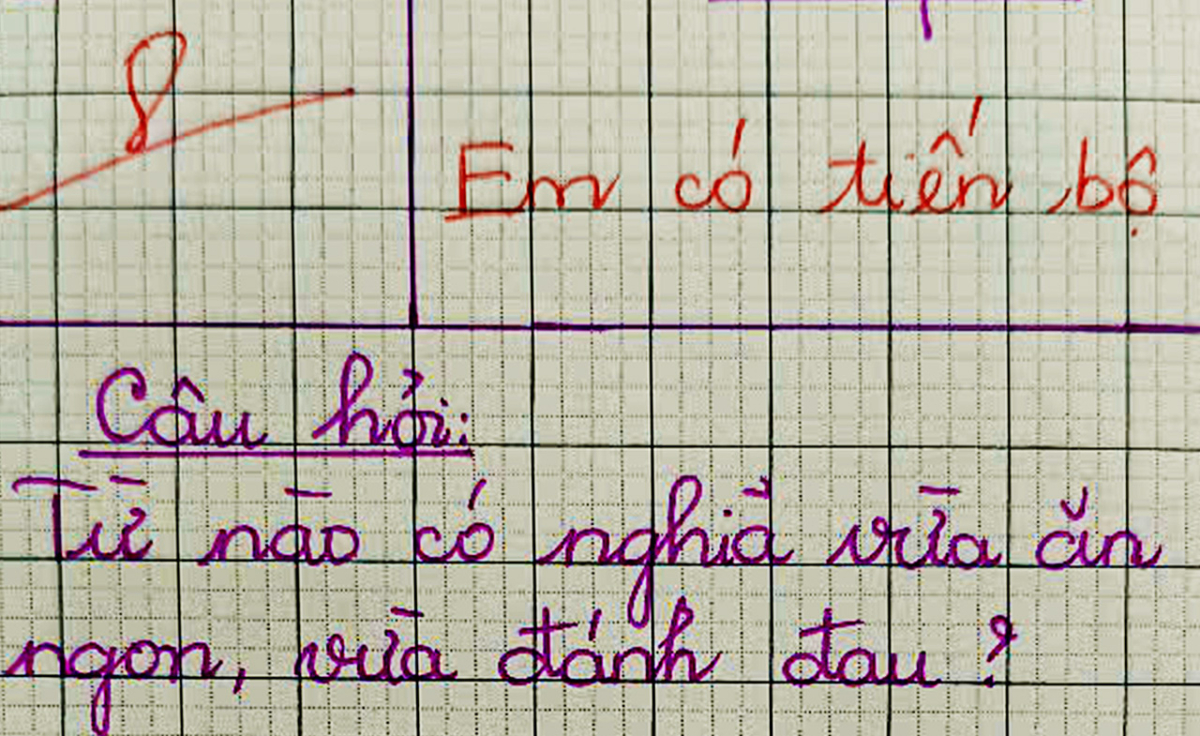 8
Em có tiến bộ
Câu hỏi:
Từ nào có nghĩa vừa ăn
ngon, vừa đánh đau?